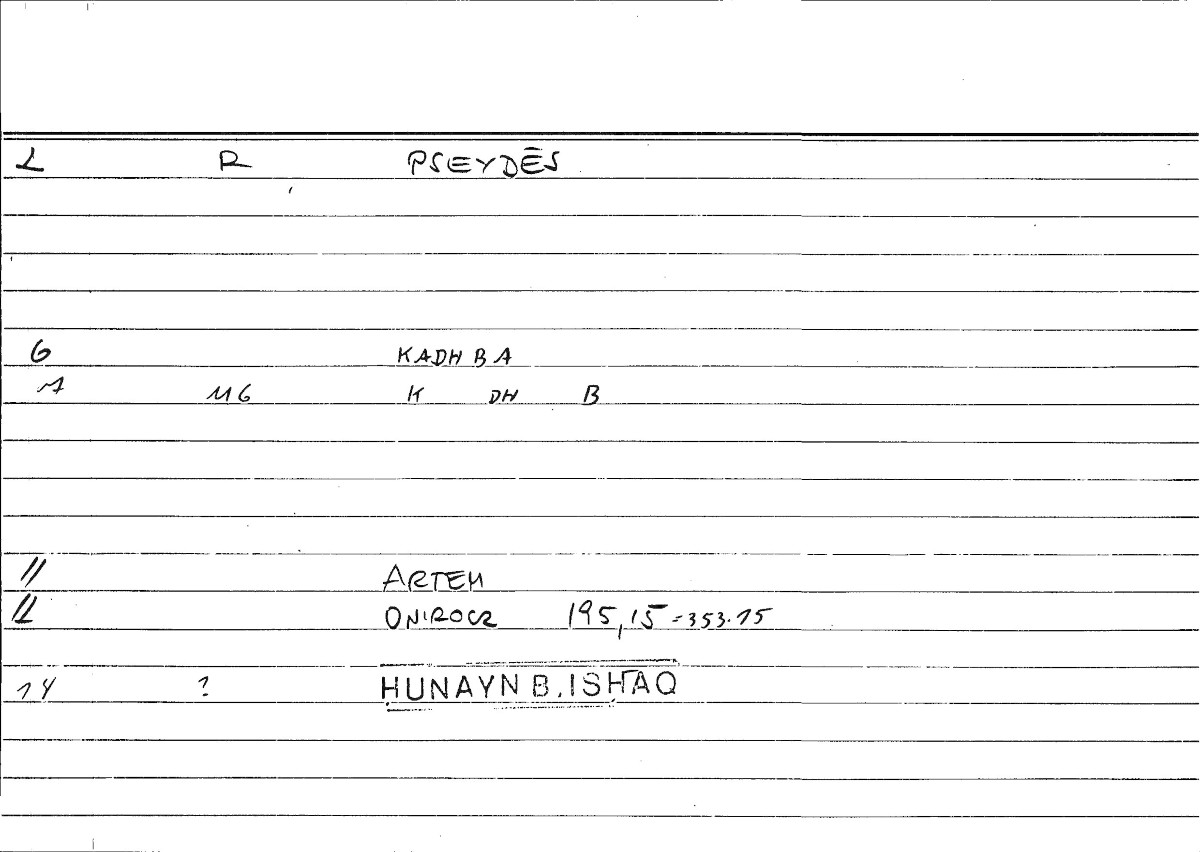 1 R PSEYDĒS
6 KADHBA
7 116 K DH B
11 ARTEM
12 ONIROCR 195,15 = 353.15
14 ? ḤUNAYN B. ISḤAQ